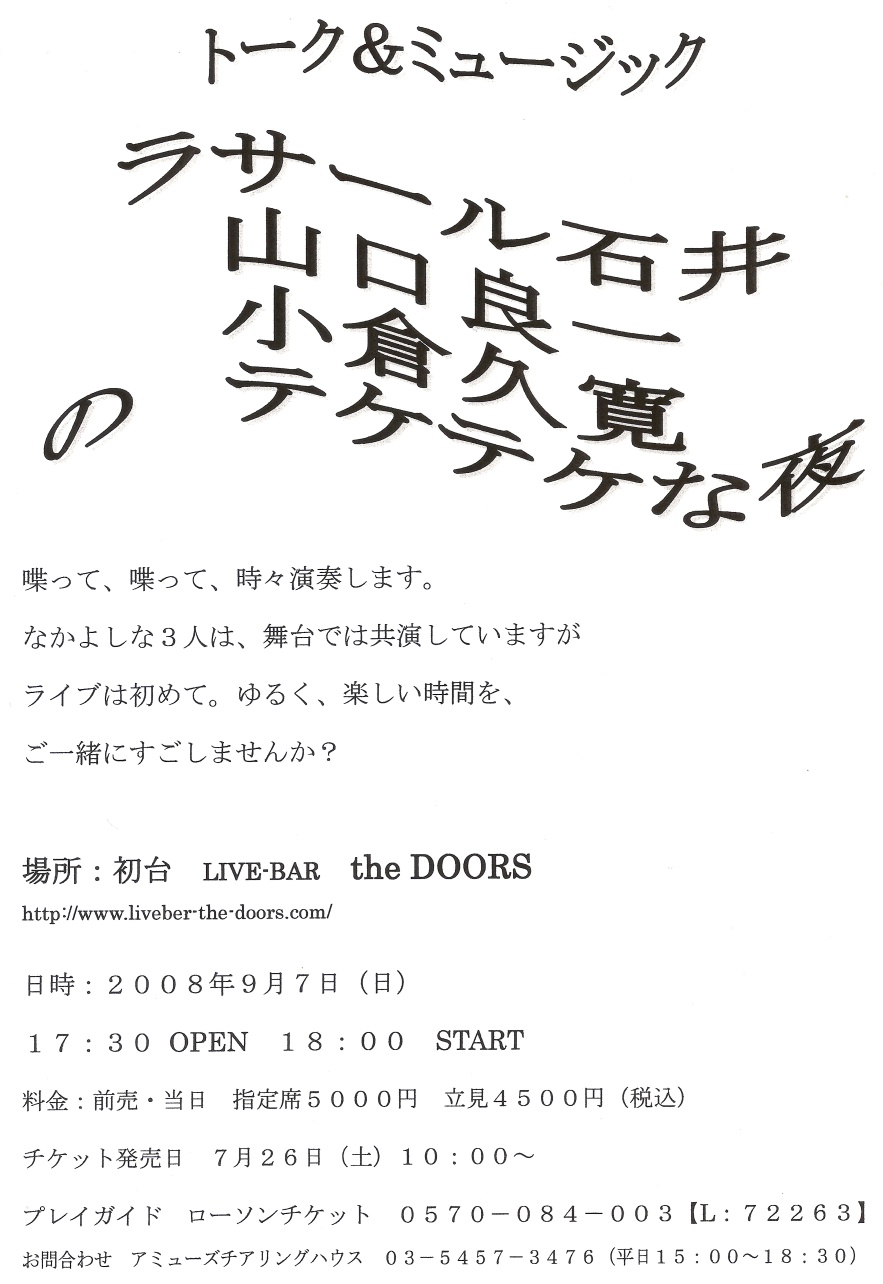 トーク＆ミュージック
ラサール石井
山口良一
小倉久寛
の　テケテケな夜
喋って、喋って、時々演奏します。
なかよしな３人は、舞台では共演していますが
ライブは初めて。ゆるく、楽しい時間を、
ご一緒にすごしませんか？
場所：初台　LIVE-BAR　the DOORS
http://www.liveber-the-doors.com/
日時：２００８年９月７日（日）
１７：３０ OPEN　１８：００　START
料金：前売・当日　指定席５０００円　立見４５００円（税込）
チケット発売日　７月２６日（土）１０：００～
プレイガイド　ローソンチケット　０５７０－０８４－００３【L：７２２６３】
お問合わせ　アミューズチアリングハウス　０３－５４５７－３４７６（平日１５：００～１８：３０）